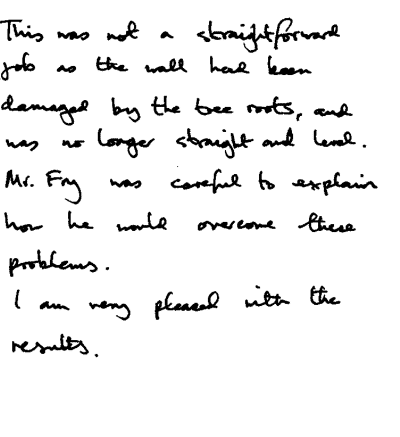 This was not a straightforward
job as the wall had been
damaged by the tree roots, and
was no longer straight and level.
Mr. Fry was careful to explain
how he would overcome these
problems.
I am very pleased with the
results.